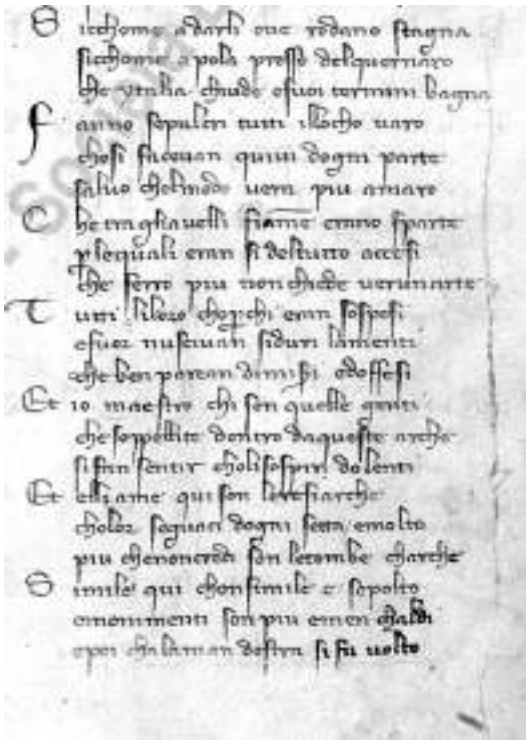 Sicchome adarli oue rodano stagna
sicchome apola presso delquernaro
che ytalia chiude esuoi termini bagna
Fanno sepulcri tutti illocho uaro
chosi faceuan quiui dogni parte
saluo chelmodo uera piu amaro
Che tragliauelli fiame erano sparte
p lequali eran si deltutto accesi
che ferro piu non chiede uerunarte
Tutti liloro choperchi eran sospesi
efuor nusciuan siduri lamenti
che ben parean dimiseri edoffesi
Et io maestro chi son quelle genti
che soppellite dentro daqueste arche
sifan sentir cholisospiri dolenti
Et elli ame qui son leresiarche
cholor seguaci dogni setta emolto
piu chenoncredi son letombe charche
Simile qui chonsimile e sepolto
emonimenti son piu emen chaldi
epoi chalaman destra si fu uolto